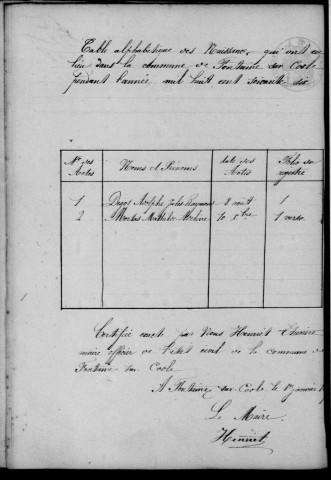 Table alphabétique des Naissances qui ont eu
lieu dans la commune de Fontaine sur Coole
pendant l'année mil huit cent soixante six
Nos des Actes
Noms et Prénoms
date des Actes
folio du registre
1 Adolphe Jules 8 août 1
2 Mathilde 10 Xbre 1 verso
Certifié exact par Nous Henriet
maire officier de l'état civil de la commune de
Fontaine sur Coole
A Fontaine sur Coole le 1er janvier
Le Maire
Henriet